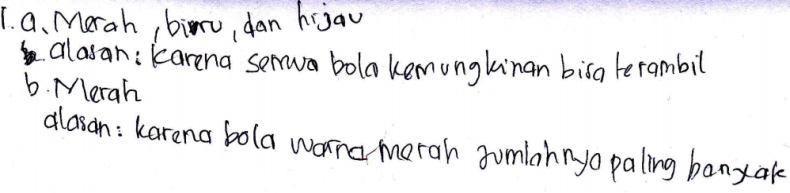 1. a. Merah, biru, dan hijau
alasan: karena semua bola kemungkinan bisa terambil
b. Merah
alasan: karena bola warna merah jumlahnya paling banyak